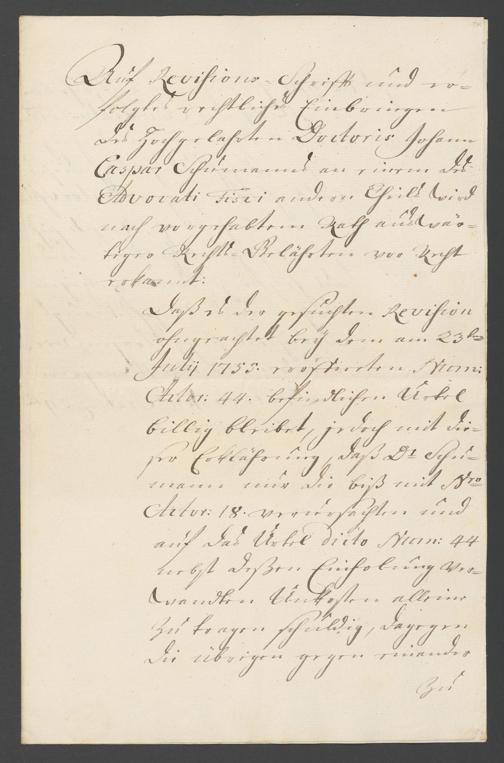 Auf Revisions-Schrifft und er-
folgtes rechtliches Einbringen
des Hochgelahrten Doctoris Johann
Caspar Schümanns an einem des
Advocati Fisci andern Theils wird
nach vorgehabtem Rath auswär-
tiger Rechts-Gelährten vor Recht
erkannt:
Daß es der gesuchten Revision
ohngeachtet bey dem am 23ten
July 1753. eröffneten Num:
Actor: 44. befindlichen Urtel
billig bleibet, jedoch mit die-
ser Erklährung, daß Dr Schü-
mann nur die biß mit Nro
Actor: 18. verursachten und
auf das Urtel dicto Num: 44
nebst deßen Einholung ver-
wandten Unkosten alleine
zu tragen schuldig, dagegen
die übrigen gegen einander
zu